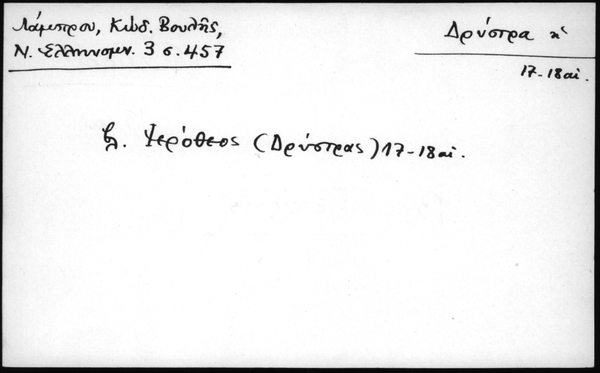 Λάμπρου, Κώδ. Βουλῆς,
Ν. Ἑλληνομν. 3 σ. 457
Δρύστρα
17-18 αἰ.
βλ. Ἱερόθεος (Δρύστρας) 17-18 αἰ.